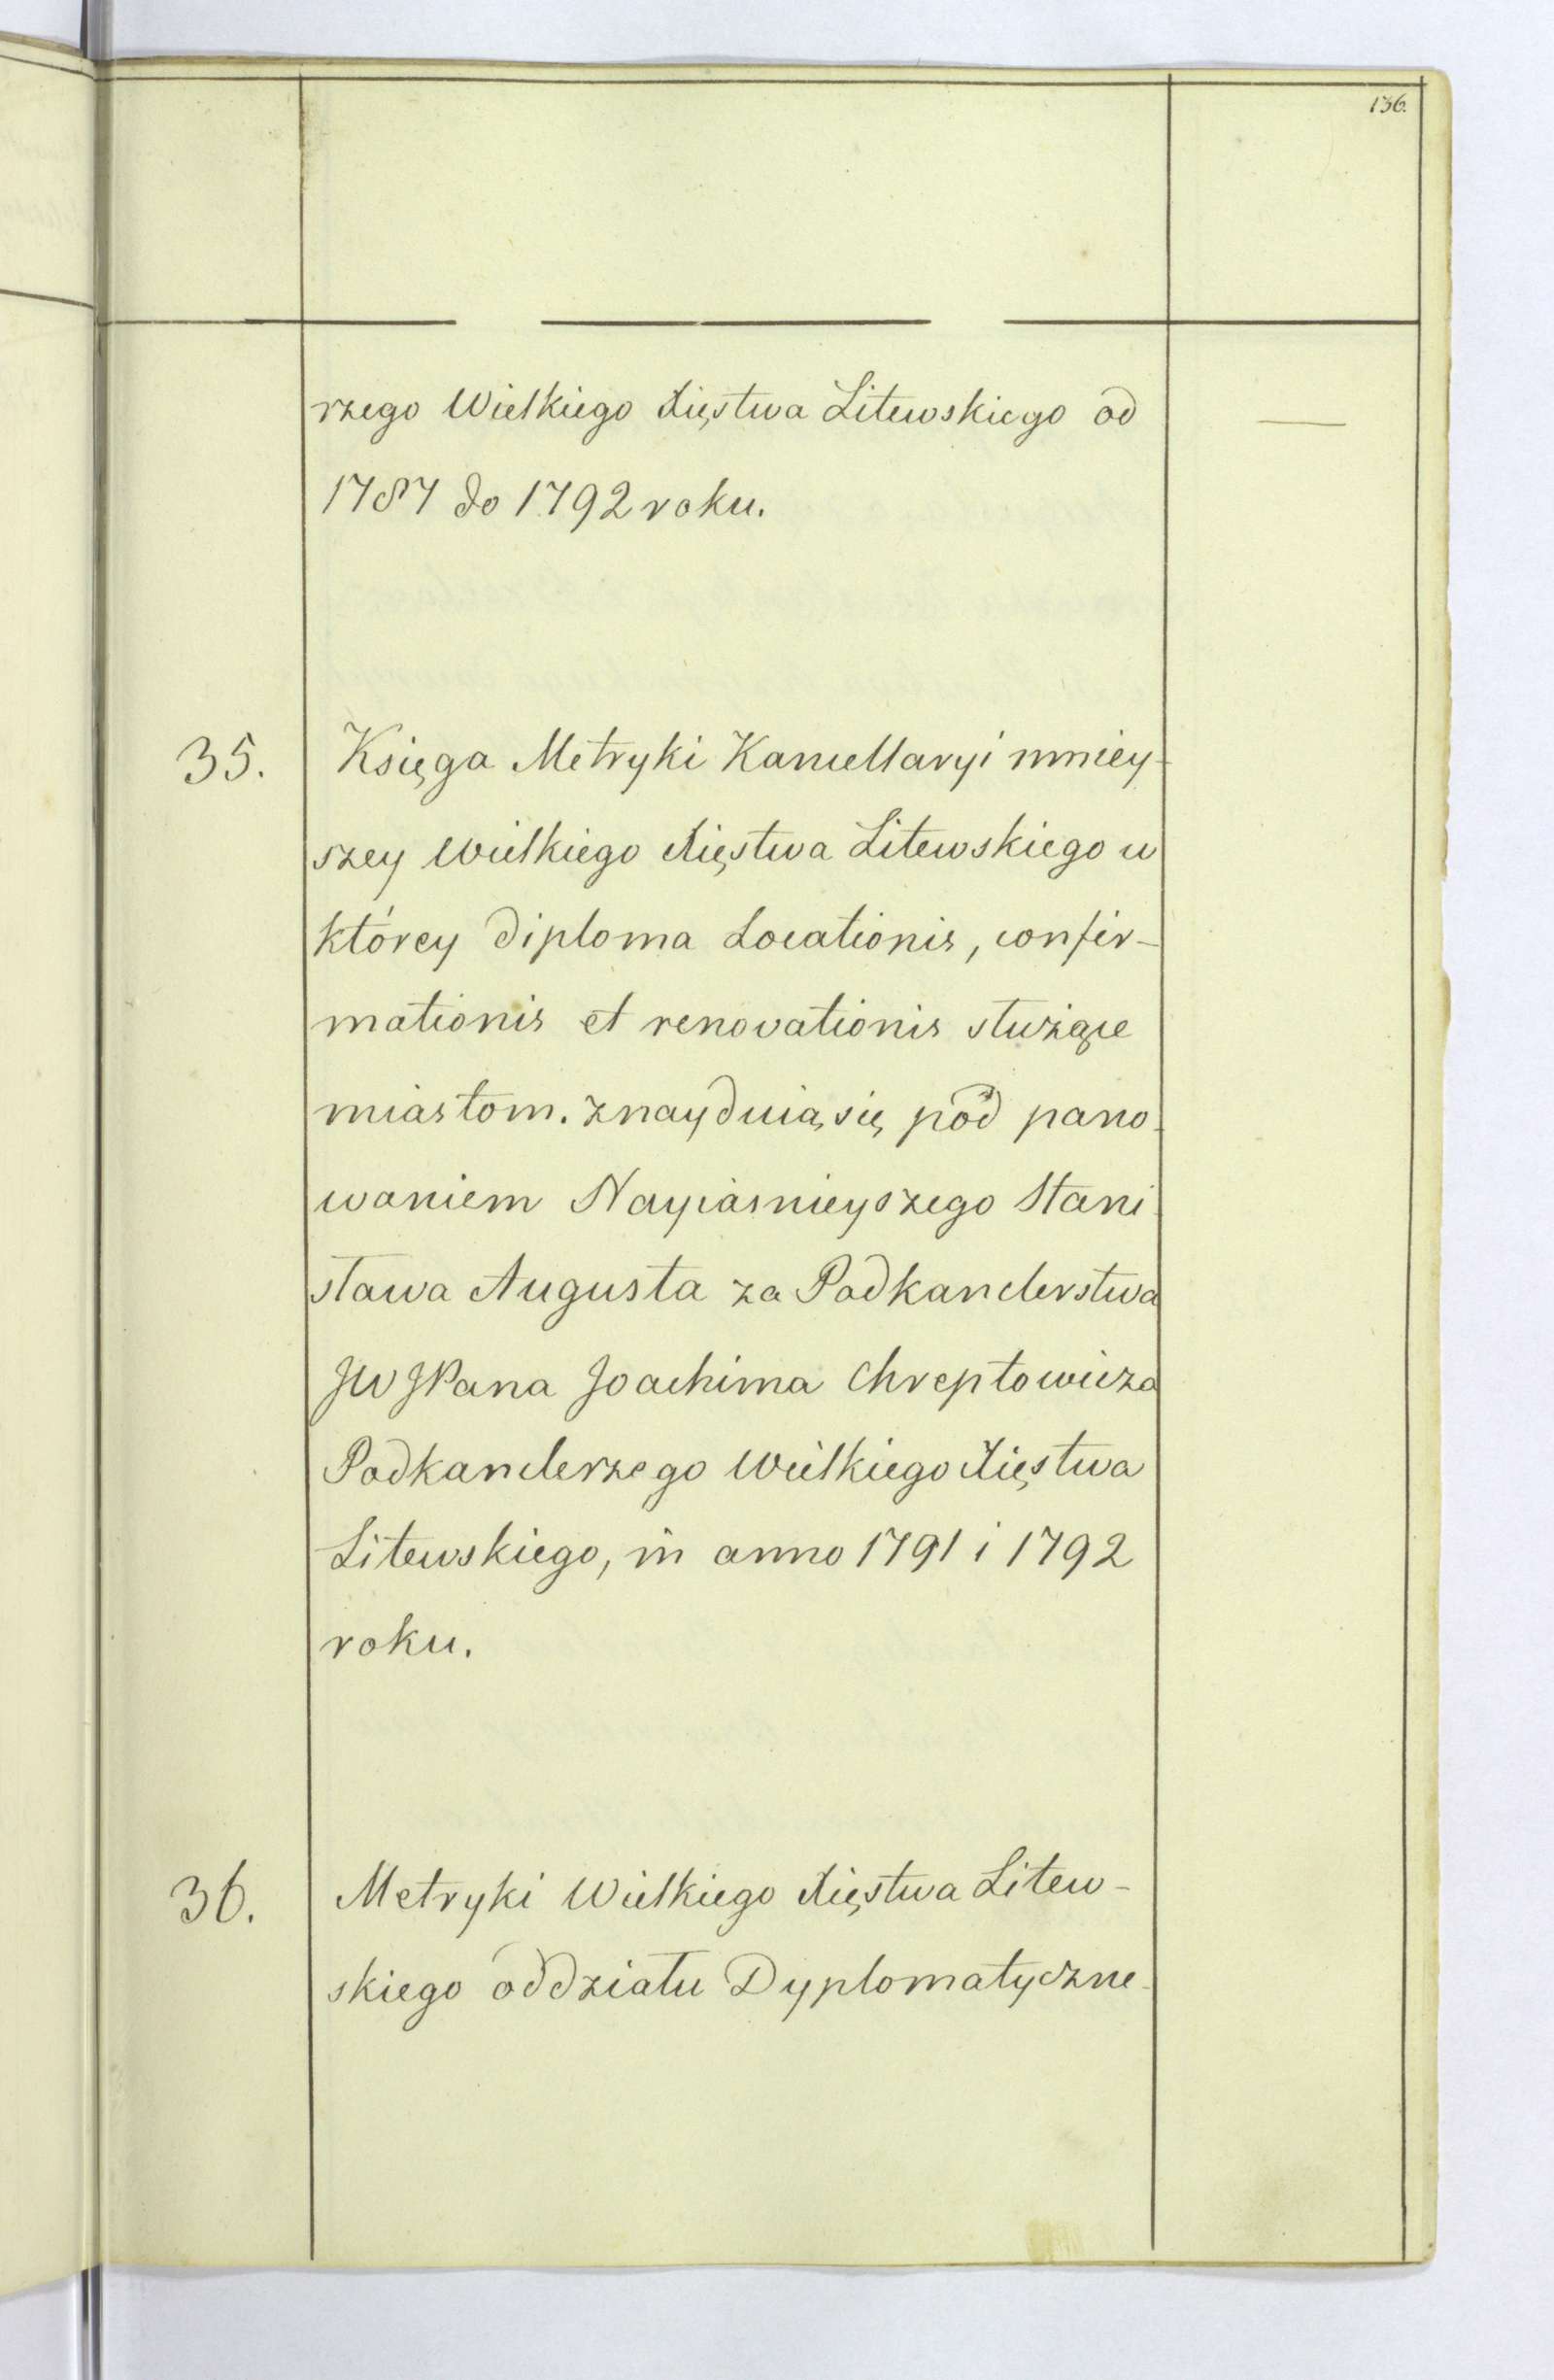 136.
rzego Wielkiego Xięstwa Litewskiego od
1787 do 1792 roku.
35. Księga Metryki Kancellaryi mniey-
szey Wielkiego Xięstwa Litewskiego w
którey diploma Locationis, confir-
mationis et renovationis służące
miastom. znayduią się pod pano-
waniem Nayiasnieyszego Stani
sława Augusta za Podkanclerstwa
JW JPana Joachima Chreptowicza
Podkanclerzego Wielkiego Xięstwa
Litewskiego, in anno 1791 i 1792
roku.
36. Metryki Wielkiego Xięstwa Litew-
skiego oddziału Dyplomatyczne-